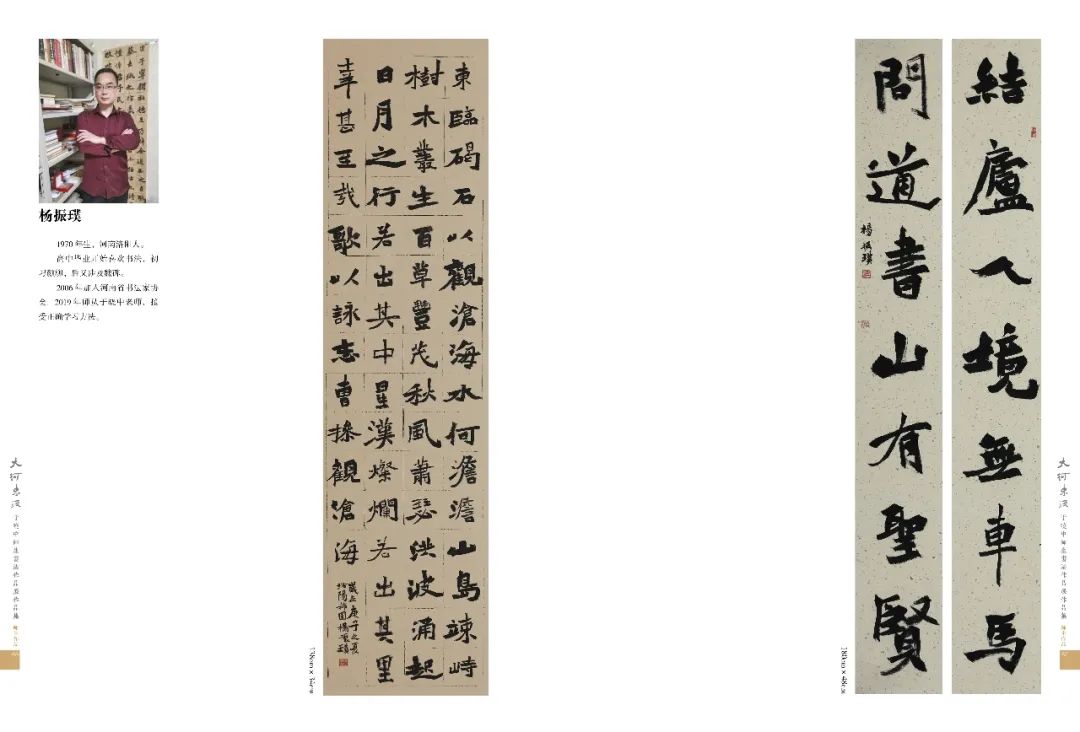 杨振璞
1970年生，河南洛阳人。
高中毕业开始喜欢书法，初
2006年加入河南省书法家协
会。2019年师从于晓中老师，接
受正确学习方法。
東臨碣石以觀滄海水何澹澹山島竦峙
樹木叢生百草豐茂秋風蕭瑟洪波涌起
日月之行若出其中星漢燦爛若出其里
幸甚至哉歌以詠志曹操觀滄海
歲在庚子之夏
138cm×34cm
結廬人境無車馬
問道書山有聖賢
楊振璞
180cm×48cm
大河東流
大河東流